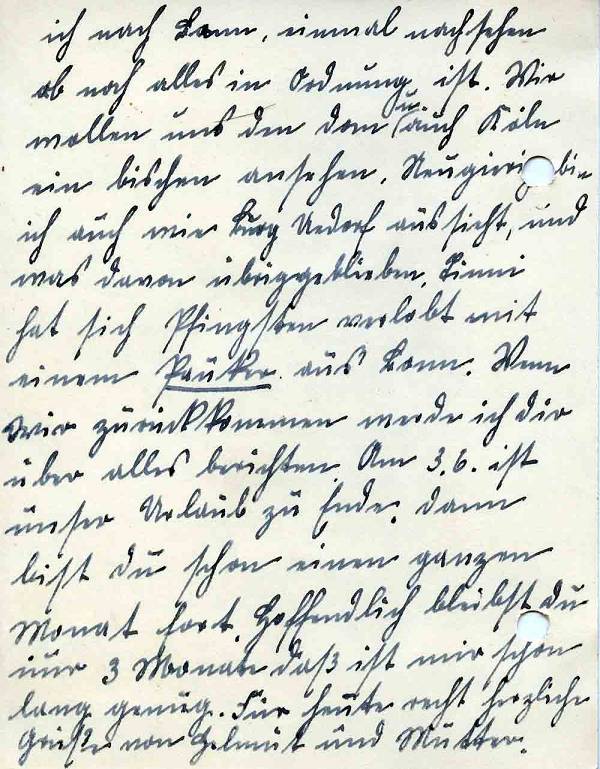 ich nach Bonn, einmal nachsehen
ob noch alles in Ordnung ist. Wir
wollen uns den Dom u. auch Köln
ein bischen ansehen. Neugierig bin
ich auch wie Burg Uedorf aussieht, und
was davon übriggeblieben. Finni
hat sich Pfingsten verlobt mit
einem Pauker aus Bonn. Wenn
wir zurückkommen werde ich dir
über alles berichten. Am 3.6. ist
unser Urlaub zu Ende. Dann
bist du schon einen ganzen
Monat fort. Hoffendlich bleibst du
nur 3 Monate daß ist mir schon
lang genug. Für heute recht herzliche
Grüße von Helmut und Mutter.